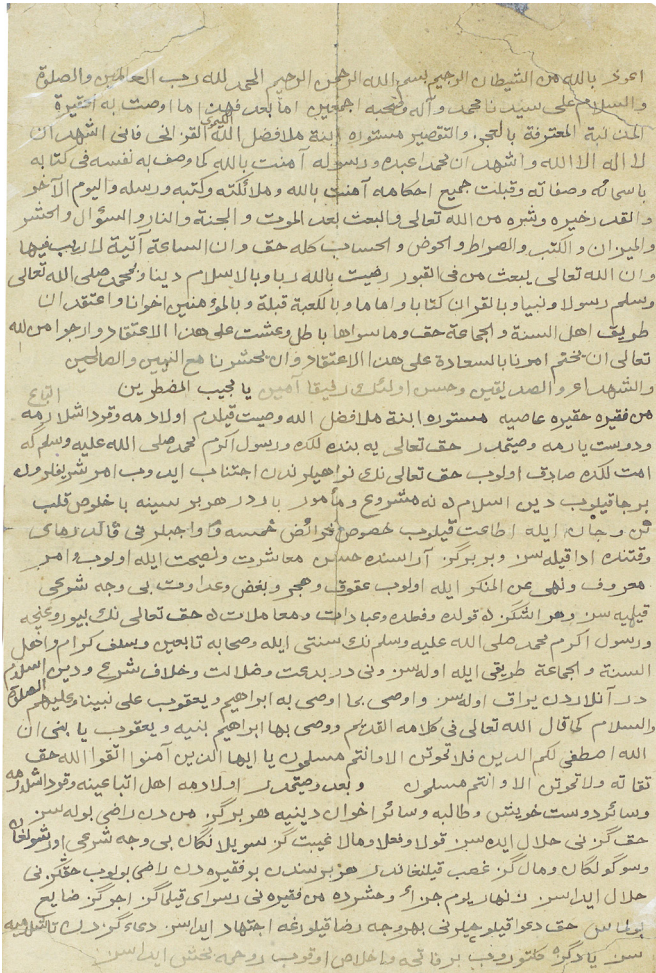 اعوذ بالله من الشيطان الرجيم بسم الله الرحمن الرحيم الحمد لله رب العالمين والصلوة
والسلام على سيدنا محمد وآله وصحبه اجمعين اما بعد فهذا ما اوصت به الحقيرة
المذنبة المعترفة بالعجز والتقصير مستوره ابنة ملا فضل الله القزانى فانى اشهد ان
لا اله الا الله واشهد ان محمدا عبده ورسوله آمنت بالله كما وصف به نفسه فى كتابه
باسمائه وصفاته وقبلت جميع احكامه آمنت بالله وملائكته وكتبه ورسله واليوم الآخر
والقدر خيره وشره من الله تعالى والبعث بعد الموت والجنة والنار والسؤال والحشر
والميزان والكتب والصراط والحوض والحساب كله حق وان الساعة آتية لا ريب فيها
وان الله تعالى يبعث من فى القبور رضيت بالله ربا وبالاسلام دينا وبمحمد صلى الله تعالى
وسلم رسولا ونبيا وبالقرآن كتابا واماما وبالكعبة قبلة وبالمؤمنين اخوانا واعتقد ان
طريق اهل السنة والجماعة حق وما سواها باطل وعشت على هذا الاعتقاد وارجوا من الله
تعالى ان يختم امرنا بالسعادة على هذا الاعتقاد وان يحشرنا مع النبيين والصالحين
والشهداء والصديقين وحسن اولئك رفيقا آمين يا مجيب المضطرين
من فقيره حقيره عاصيه مستوره ابنة ملا فضل الله وصيت قيلدم اولادمه وقرداشلارمه
ودوست يارمه وصيتمدر حق تعالى يه بنده لكده ورسول اكرم محمد صلى الله عليه وسلم كه
امت لكده صادق اولوب حق تعالى نك نواهيلرندن اجتناب ايدوب امر شريفلرون
برجا قيلوب دين اسلام ده نه مشروع ومأمور باردر هر بر سينه با خلوص قلب
تن وجان ايله اطاعت قيلوب خصوص فرائض خمسه واجبلرنى قالدرماى
وقتنده ادا قيله سن وبر برگز آراسنده حسن معاشرت ونصيحت ايله اولوب وامر
معروف ونهى عن المنكر ايله اولوب عقوق وهجر وبغض وعداوت بى وجه شرعى
قيلميه سن وهر اشكزده قولده وفعلده وعبادات ومعاملاتده حق تعالى نك بيورو غنچه
ورسول اكرم محمد صلى الله عليه وسلم نك سنتى ايله وصحابه تابعين وسلف كرام واهل
السنة والجماعة طريقى ايله اوله سن ونى در بدعت وضلالت وخلاف شرع ودين اسلام
در آنلاردن يراق اوله سن واوصى بما اوصى به ابراهيم ويعقوب على نبينا وعليهم الصلاة
والسلام كما قال الله تعالى فى كلامه القديم ووصى بها ابراهيم بنيه ويعقوب يا بنى ان
الله اصطفى لكم الدين فلا تموتن الا وانتم مسلمون يا ايها الذين آمنوا اتقوا الله حق
تقاته ولا تموتن الا وانتم مسلمون وبعده وصيتمدر اولادمه اهل اتباعينه وقرداشلارمه
وسائر دوست خويش وطالبه وسائر اخوان دينيه هر برگز من دن راضى بوله سن
حق گزنى حلال ايده سن قولا وفعلا ومالا غيبت گز سويلانگان بى وجه شرعى اورشولغان
وسوگولگان ومال گز غصب قيلنغاندر هر برسندن بو فقيره دن راضى بولوب حقگزنى
حلال ايداسن زنهار يوم جزاء وحشرده من فقيره نى رسواى قيلماگز اجرگز ضايع
بولماس حق دعوا قيلوچيلرنى بهر وجه رضا قيلورغه اجتهاد ايداسن دعاءگزدن
سن يادگزه كلتوروب بر فاتحه واخلاص اوقوب روحمه بخش ايداسن